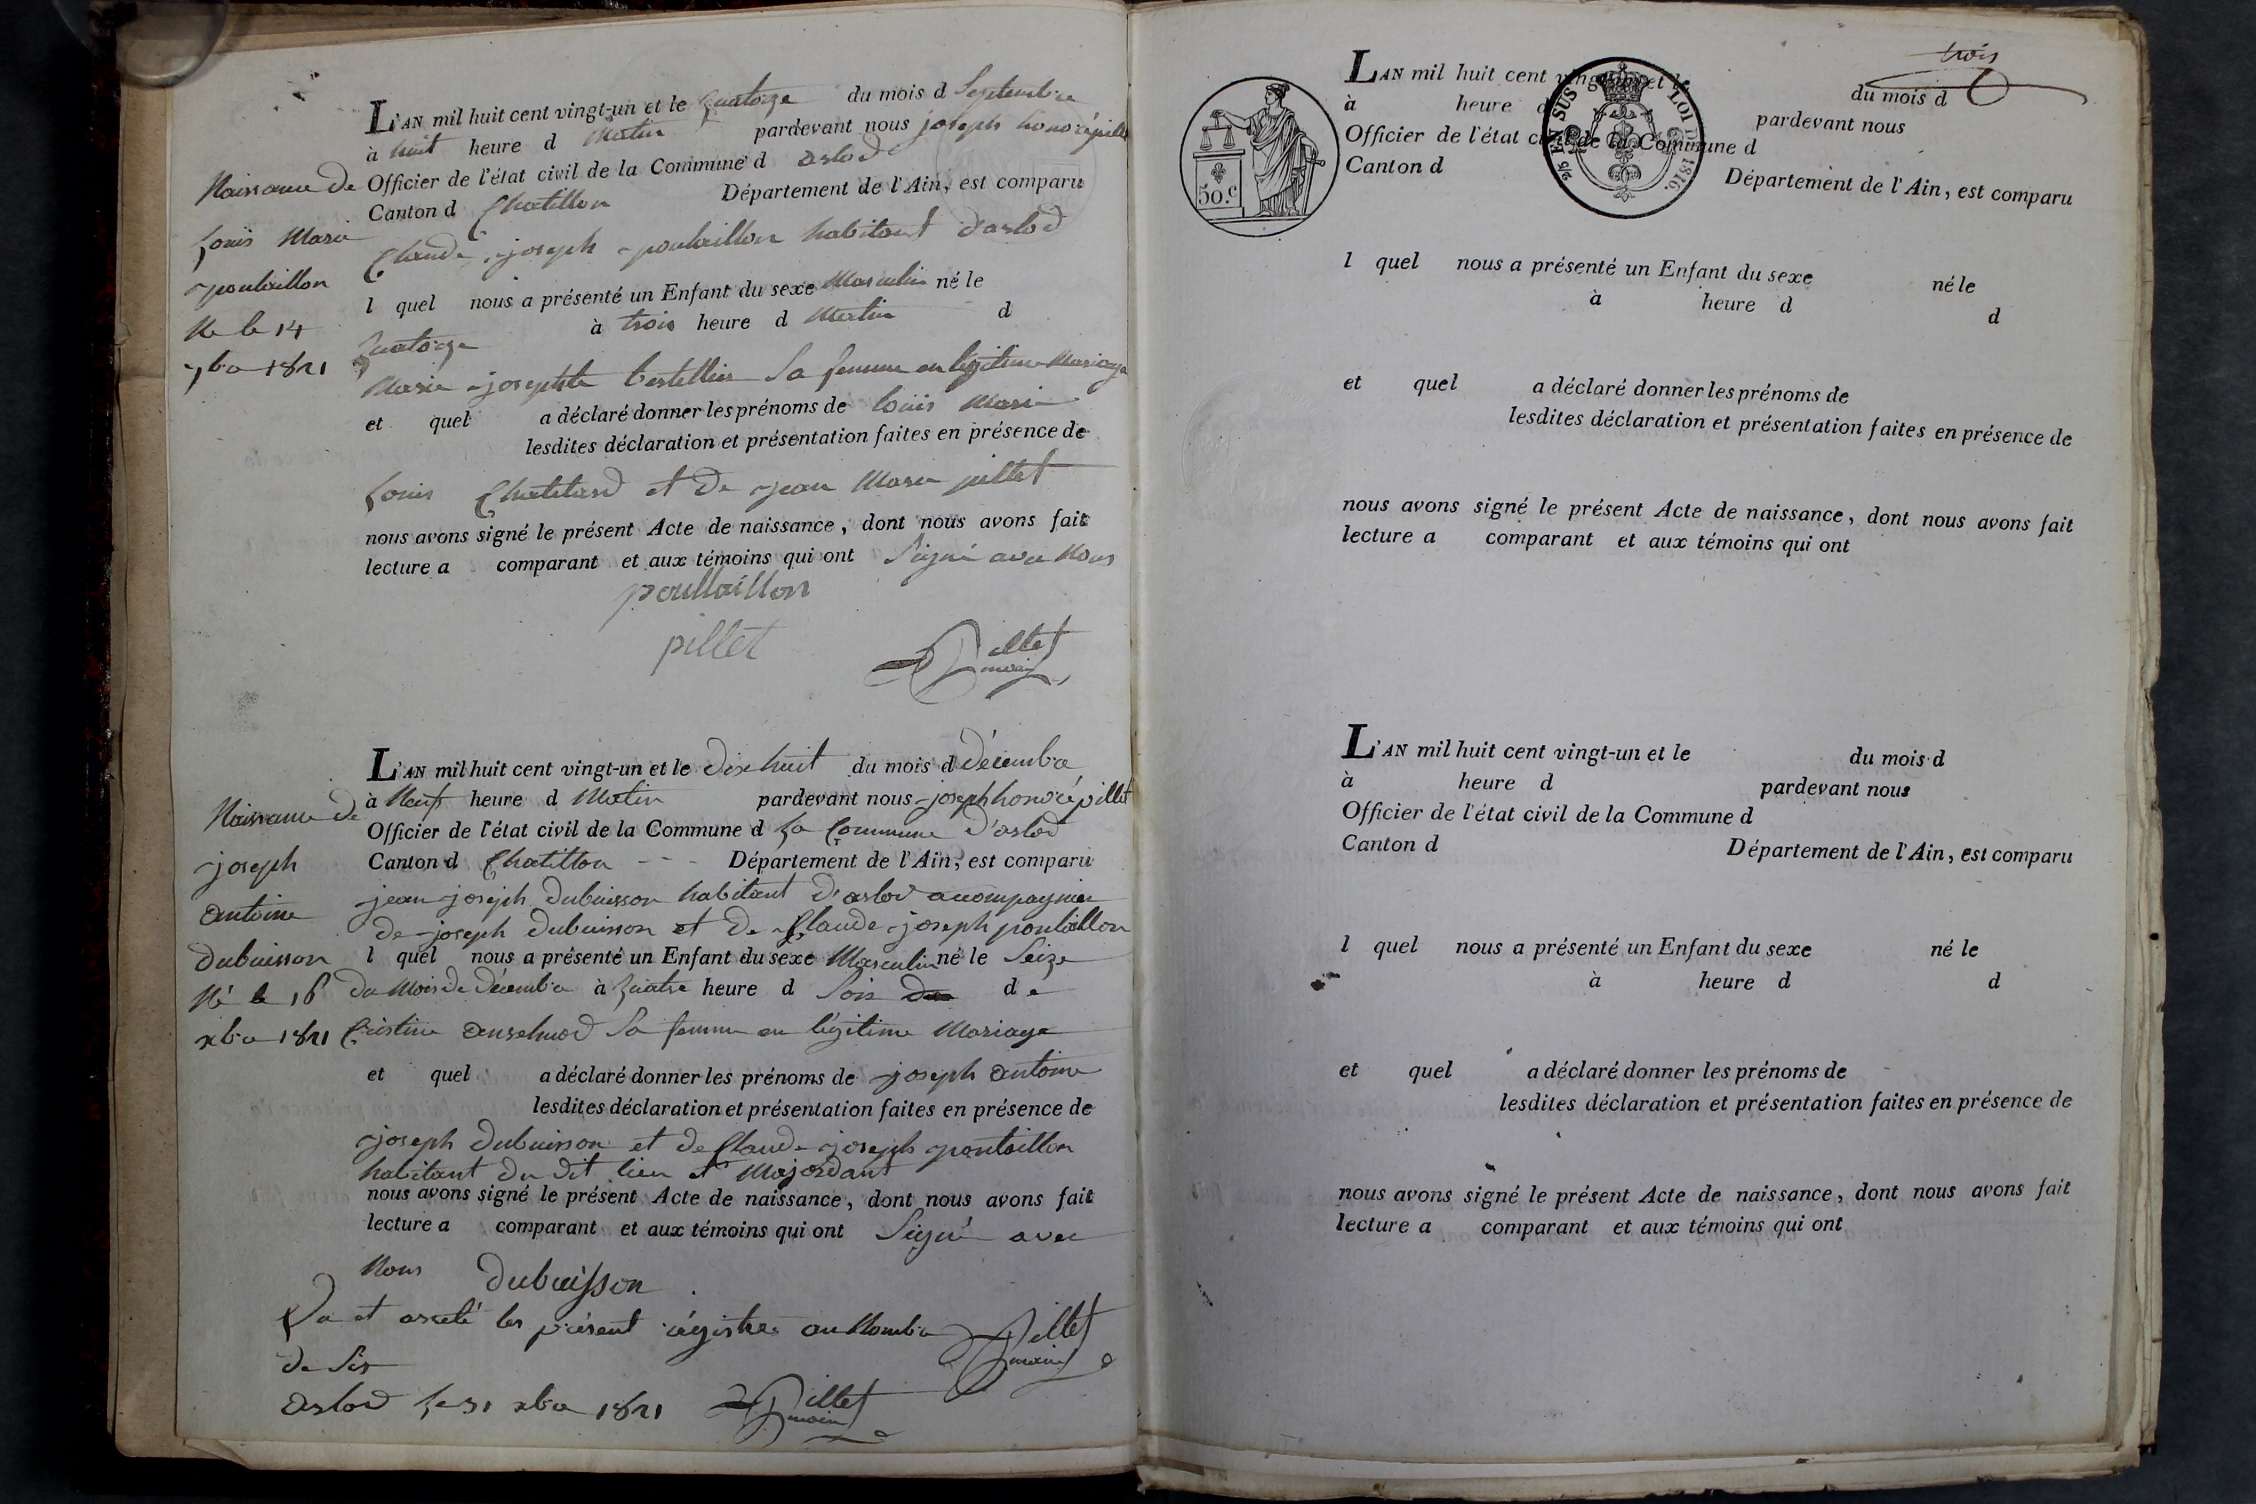 L'AN mil huit cent vingt-un et le quatorze du mois d Septembre
à huit heure d Matin pardevant nous joseph honoré pillet
Officier de l'état civil de la Commune d arlod
Canton d Chatillon Département de l'Ain, est comparu
Claude joseph poulaillon habitant d'arlod
l quel nous a présenté un Enfant du sexe Masculin né le
quatorze à trois heure d Matin d
Marie josephte bertellier Sa femme en légitime Mariage
et quel a déclaré donner les prénoms de louis Marie
lesdites déclaration et présentation faites en présence de
Louis Chatelard et de jean Marie pillet
nous avons signé le présent Acte de naissance, dont nous avons fait
lecture a comparant et aux témoins qui ont Signé avec Nous
poullaillon
pillet
Pillet
maire
Naissance de
Louis Marie
poulaillon
Né le 14
7bre 1821
L'AN mil huit cent vingt-un et le dix huit du mois d décembre
à Neuf heure d Matin pardevant nous joseph honoré pillet
Officier de l'état civil de la Commune d La Commune d'arlod
Canton d Chatillon - - - Département de l'Ain, est comparu
jean joseph Dubuisson habitant d'arlod acompagnier
de joseph Dubuisson et de Claude joseph poulaillon
l quel nous a présenté un Enfant du sexe Masculin né le Seize
du Mois de décembre à quatre heure d Soir d e
Cristine Sa femme en légitime Mariage
et quel a déclaré donner les prénoms de joseph antoine
lesdites déclaration et présentation faites en présence de
joseph Dubuisson et de Claude joseph poulaillon
habitant du dit lieu et
nous avons signé le présent Acte de naissance, dont nous avons fait
lecture a comparant et aux témoins qui ont Signé avec
Nous
Dubuisson
Naissance de
joseph
antoine
Dubuisson
Né le 16
xbre 1821
Vu et areté les présent régistres au Nombre
de Six
Pillet
maire
arlod Le 31 xbre 1821 Pillet
maire
trois
L'AN mil huit cent vingt-un et le du mois d
à heure d pardevant nous
Officier de l'état civil de la Commune d
Canton d Département de l'Ain, est comparu
50.c
EN SUS
LOI DE 1816.
l quel nous a présenté un Enfant du sexe né le
à heure d d
et quel a déclaré donner les prénoms de
lesdites déclaration et présentation faites en présence de
nous avons signé le présent Acte de naissance, dont nous avons fait
lecture a comparant et aux témoins qui ont
L'AN mil huit cent vingt-un et le du mois d
à heure d pardevant nous
Officier de l'état civil de la Commune d
Canton d Département de l'Ain, est comparu
l quel nous a présenté un Enfant du sexe né le
à heure d d
et quel a déclaré donner les prénoms de
lesdites déclaration et présentation faites en présence de
nous avons signé le présent Acte de naissance, dont nous avons fait
lecture a comparant et aux témoins qui ont